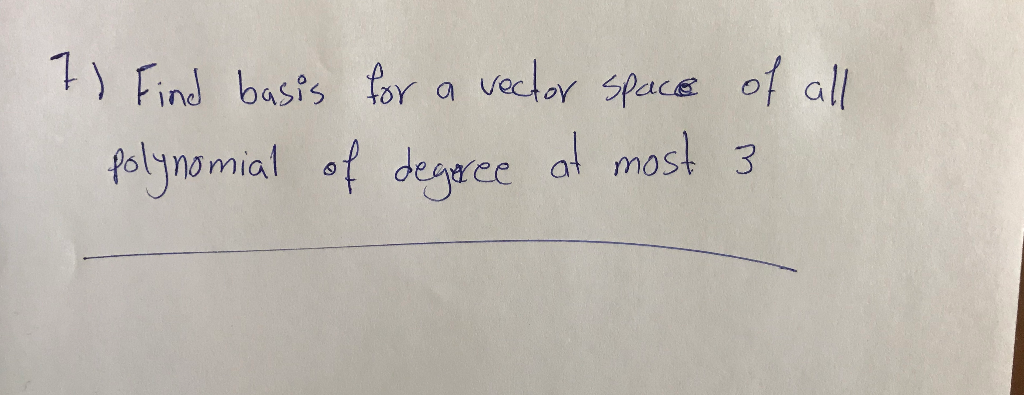 7) Find basis for a vector space of all
polynomial of degree at most 3